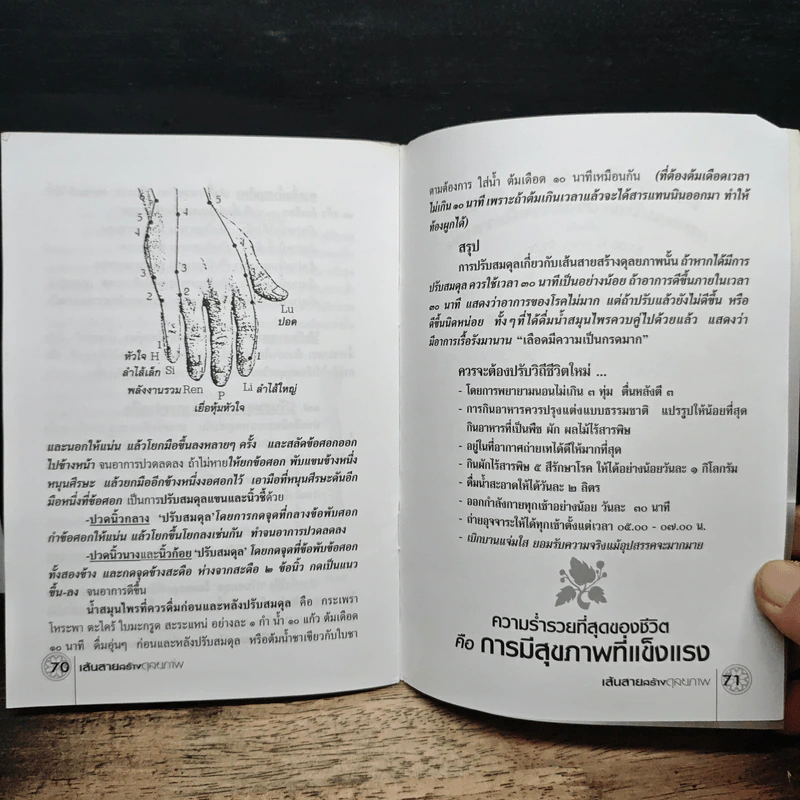 5
4
3
2
1
5
4
3
2
1
5
4
3
2
1
Lu
ปอด
หัวใจ H
ลำไส้เล็ก Si
Li ลำไส้ใหญ่
พลังงานรวม Ren
P
เยื่อหุ้มหัวใจ
และนอกให้แน่น แล้วโยกมือขึ้นลงหลายๆ ครั้ง และสลัดข้อศอกออก
ไปข้างหน้า จนอาการปวดลดลง ถ้าไม่หายให้ยกข้อศอก พับแขนข้างหนึ่ง
หนุนศีรษะ แล้วยกมืออีกข้างหนึ่งงอศอกไว้ เอามือที่หนุนศีรษะดันอีก
มือหนึ่งที่ข้อศอก เป็นการปรับสมดุลแขนและนิ้วชี้ด้วย
-ปวดนิ้วกลาง 'ปรับสมดุล' โดยการกดจุดที่กลางข้อพับศอก
กำข้อศอกให้แน่น แล้วโยกขึ้นโยกลงเช่นกัน ทำจนอาการปวดลดลง
-ปวดนิ้วนางและนิ้วก้อย 'ปรับสมดุล' โดยกดจุดที่ข้อพับข้อศอก
ทั้งสองข้าง และกดจุดข้างสะดือ ห่างจากสะดือ ๒ ข้อนิ้ว กดเป็นแนว
ขึ้น-ลง จนอาการดีขึ้น
น้ำสมุนไพรที่ควรดื่มก่อนและหลังปรับสมดุล คือ กระเพรา
โหระพา ตะไคร้ ใบมะกรูด สะระแหน่ อย่างละ ๑ กำ น้ำ ๑๐ แก้ว ต้มเดือด
๑๐ นาที ดื่มอุ่นๆ ก่อนและหลังปรับสมดุล หรือต้มน้ำชาเขียวกับใบชา
70 เส้นสายสร้างดุลยภาพ
ตามต้องการ ใส่น้ำ ต้มเดือด ๑๐ นาทีเหมือนกัน (ที่ต้องต้มเดือดเวลา
ไม่เกิน ๑๐ นาที เพราะถ้าต้มเกินเวลาแล้วจะได้สารแทนนินออกมา ทำให้
ท้องผูกได้)
สรุป
การปรับสมดุลเกี่ยวกับเส้นสายสร้างดุลยภาพนั้น ถ้าหากได้มีการ
ปรับสมดุล ควรใช้เวลา ๓๐ นาทีเป็นอย่างน้อย ถ้าอาการดีขึ้นภายในเวลา
๓๐ นาที แสดงว่าอาการของโรคไม่มาก แต่ถ้าปรับแล้วยังไม่ดีขึ้น หรือ
ดีขึ้นนิดหน่อย ทั้งๆ ที่ได้ดื่มน้ำสมุนไพรควบคู่ไปด้วยแล้ว แสดงว่า
มีอาการเรื้อรังมานาน "เลือดมีความเป็นกรดมาก"
ควรจะต้องปรับวิถีชีวิตใหม่ ...
- โดยการพยายามนอนไม่เกิน ๓ ทุ่ม ตื่นหลังตี ๓
- การกินอาหารควรปรุงแต่งแบบธรรมชาติ แปรรูปให้น้อยที่สุด
กินอาหารที่เป็นพืช ผัก ผลไม้ไร้สารพิษ
- อยู่ในที่อากาศถ่ายเทได้ดีให้มากที่สุด
- กินผักไร้สารพิษ ๕ สีรักษาโรค ให้ได้อย่างน้อยวันละ ๑ กิโลกรัม
- ดื่มน้ำสะอาดให้ได้วันละ ๒ ลิตร
- ออกกำลังกายทุกเช้าอย่างน้อย วันละ ๓๐ นาที
- ถ่ายอุจจาระให้ได้ทุกเช้าตั้งแต่เวลา ๐๕.๐๐ - ๐๗.๐๐ น.
- เบิกบานแจ่มใส ยอมรับความจริงแม้อุปสรรคจะมากมาย
ความร่ำรวยที่สุดของชีวิต
คือ การมีสุขภาพที่แข็งแรง
เส้นสายสร้างดุลยภาพ 71